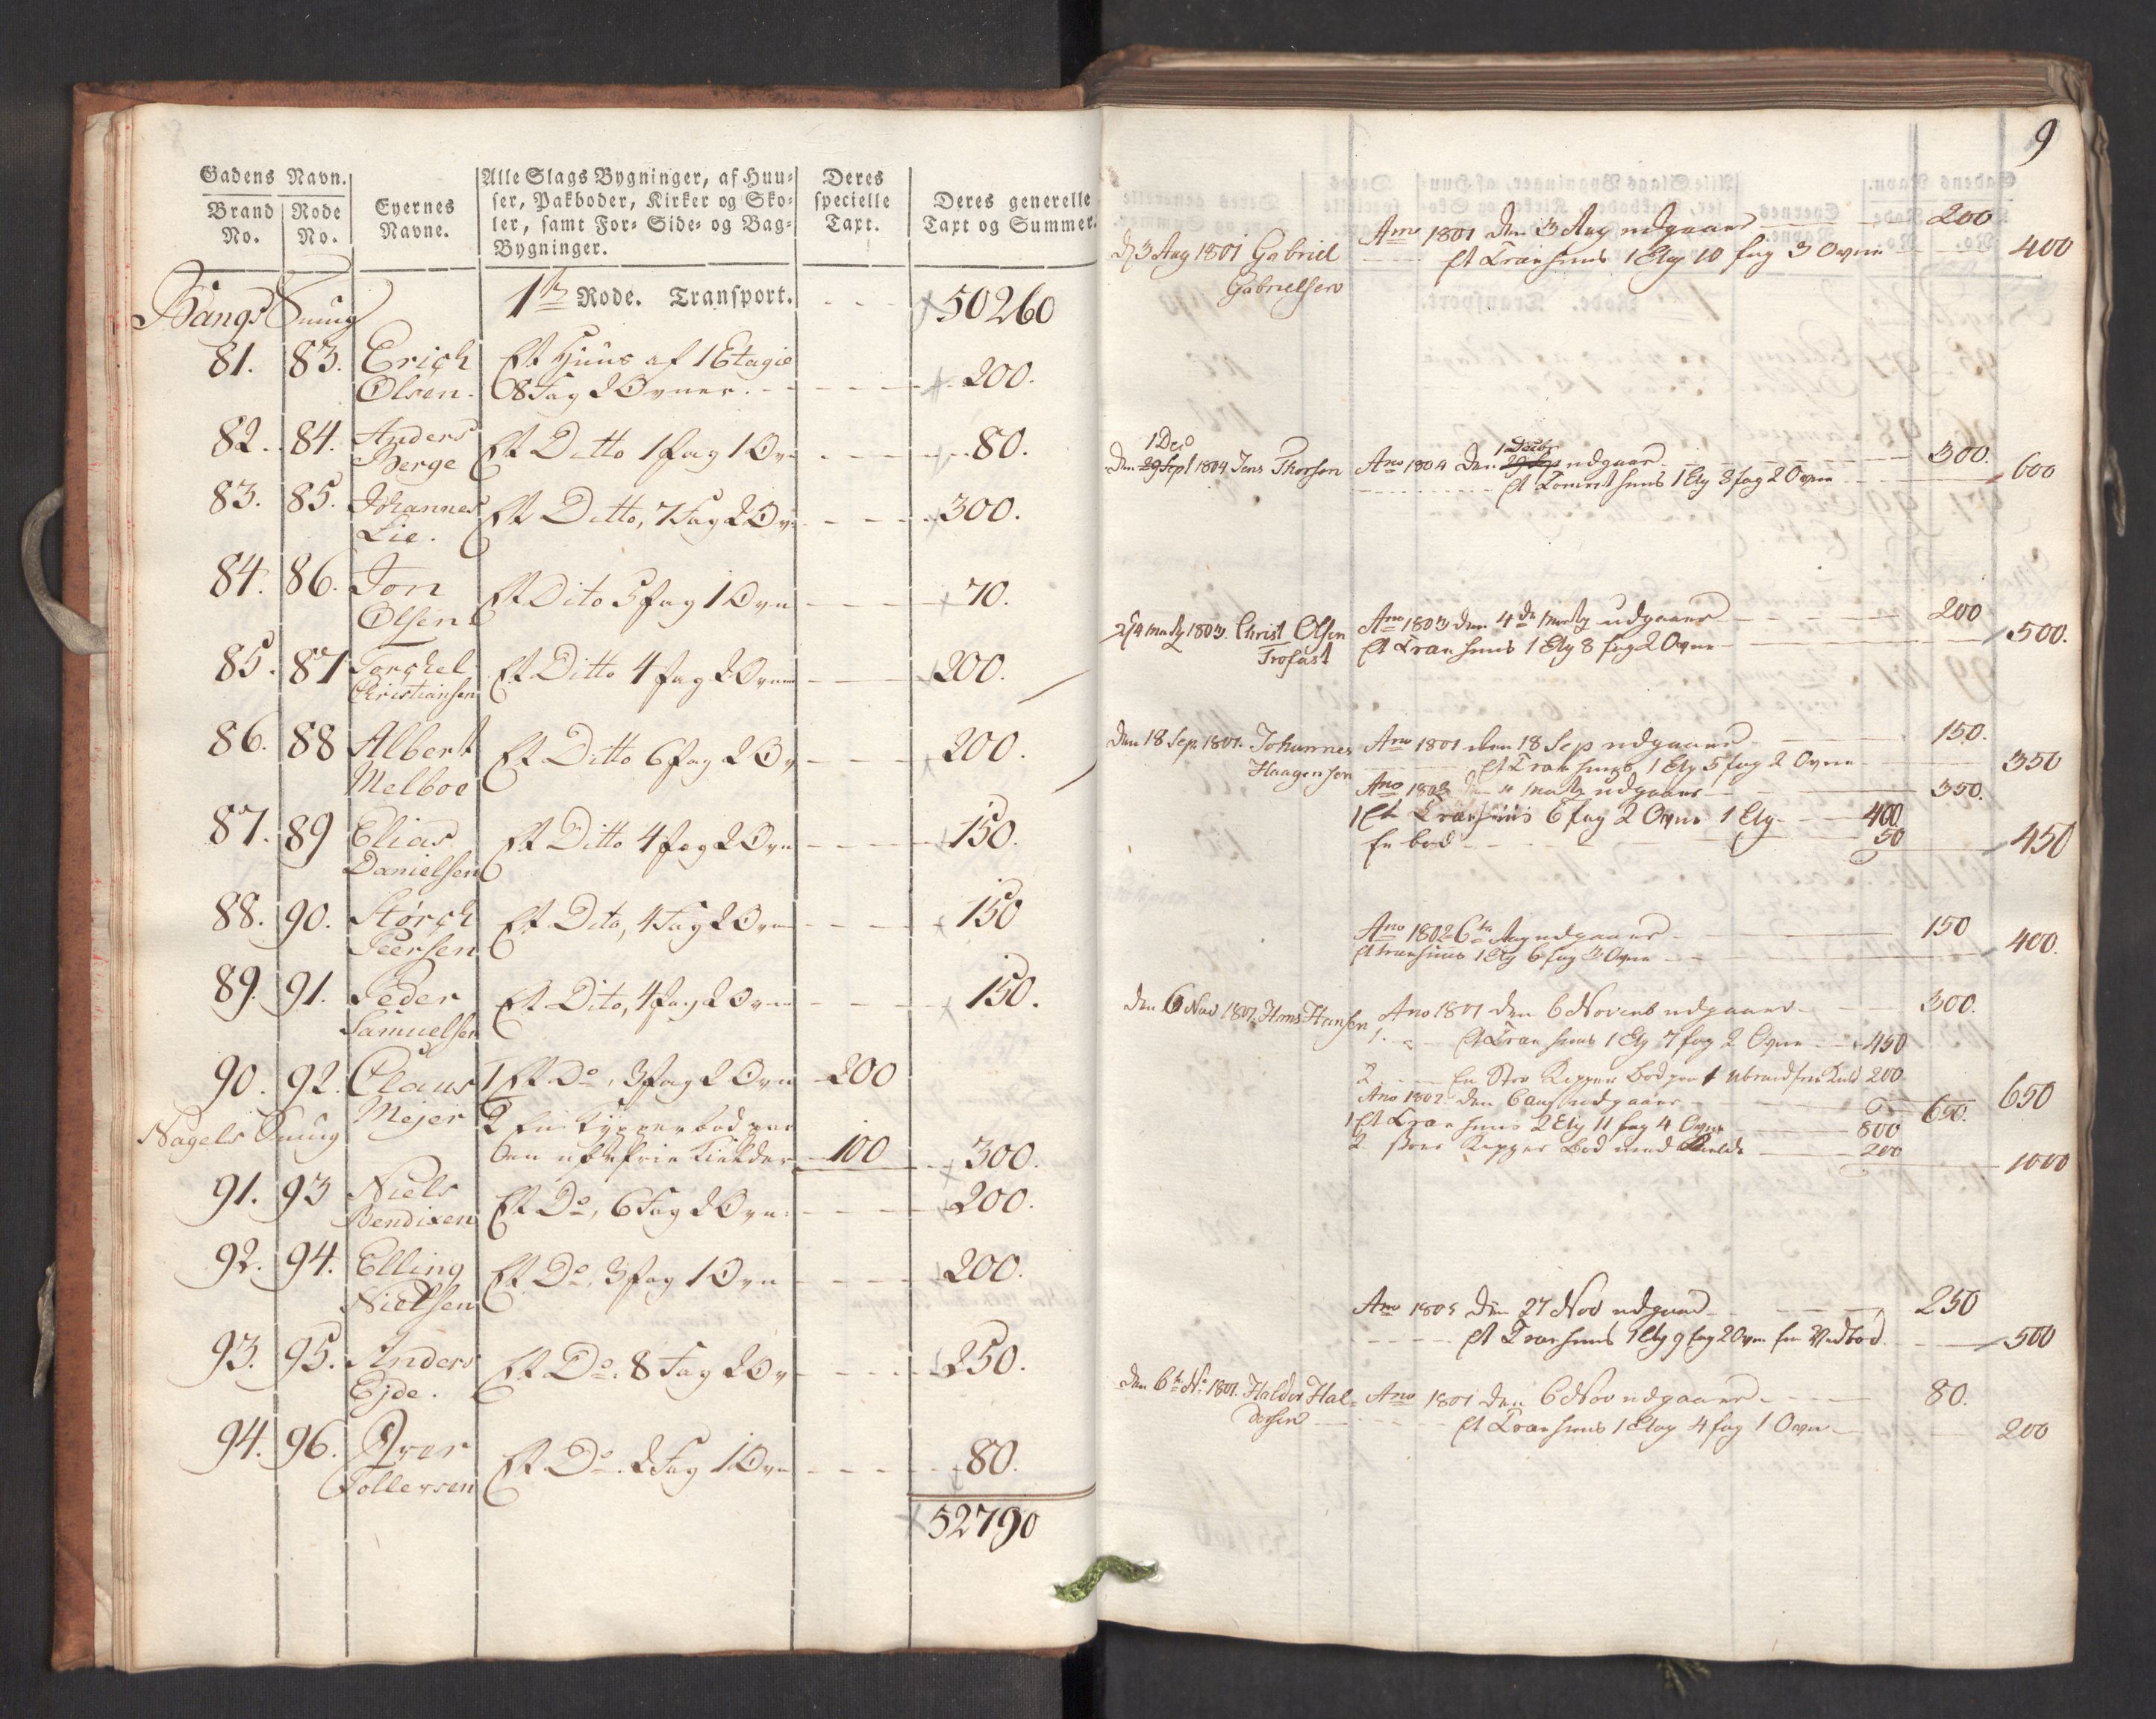 Gadens Navn.
Brand No.
Rode No.
Eyernes Navne.
Alle Slags Bygninger, af Huu-
ser, Pakboder, Kirker og Sko-
ler, samt For- Side- og Bag-
Bygninger.
Deres
specielle
Taxt.
Deres generelle
Taxt og Summer.
Bangs Smug
1te Rode. Transport. 50260
81. 83. Erich Et Huus af 1 Etagie
Olsen. 8 Fag 2 Ovner. 200.
82. 84. Anders
Berge Et Ditto 1 fag 1 Ov 80.
83. 85. Johannes
Lie. Et Ditto, 7 Fag 2 Ov 300.
84. 86. Jon
Olsen Et Dito 5 fag 1 Ovn 70.
85. 87 Torchel
Christiansen Et Ditto 4 fag 2 Ovn 200.
86. 88 Albert
Melboe Et Ditto 6 fag 2 Ov 200.
87. 89 Elias
Danielsen Et Ditto 4 fag 2 Ovn 150.
88. 90. Størch
Peersen Et Dito, 4 Fag 2 Ovn 150
89. 91. Peder
Samuelsen Et Dito, 4 fag 2 Ovn 150.
90. 92. Claus 1 Et Do, 3 fag 2 Ovn 200
Nagels Smug Mejer 2 En Kypperbod paa
en frie Kielder 100 300.
91. 93 Niels
Bendixen Et Do, 6 Fag 2 Ovn 200.
92. 94. Elling
Nielsen Et Do, 3 fag 1 Ovn 200.
93. 95. Anders
Ejde. Et Do. 8 Fag 2 Ov 250.
94. 96. Iver
Tollersen Et Do. 2 Fag 1 Ovn 80.
52790
9
Ano 1801 den 3 Aug udgaaer 200
d 3 Aug 1801 Gabriel
Gabrielsen
Et Træe huus 1 Etg 10 fag 3 Ovne 400
1 Dec 1 Decbr
Den 29 Sept 1804 Jens Thorsen Ano 1804 den 29 Sep udgaar 300.
Et huus 1 Etg 8 fag 2 Ovne 600
d 4 1803. Christ Olsen
Trofast
Ano 1803 den 4de udgaaer 200
Et Træe huus 1 Etg 8 fag 2 Ovne 500.
Den 18 Sep 1801. Johannes
Haagensen
Ano 1801 den 18 Sep udgaaer 150.
Et Træe huus 1 Etg 5 fag 2 Ovne 350
Ano 1803 den 4 udgaaer 350.
1 Et Træehuus 6 fag 2 Ovne 1 Etg 400
En bod 50 450
Ano 1802 6te Aug udgaaer 150
Et træehuus 1 Etg 6 fag 3 Ovne 400.
den 6 Nov 1801. Hans Hansen Ano 1801 den 6 Novemb udgaaer 300.
1. Et Træe huus 1 Etg 7 fag 2 Ovne 450
2 En Stor Kypper Bod paa 1 200
650
Ano 1802. den 6 aug udgaaer 650.
1 Et Træe huus 2 Etg 11 fag 4 Ovne 800
2 Stor Kypper Bod med 200
1000
Ano 1805 den 27 Nov udgaaer 250
Et Træe huus 1 Etg 9 fag 2 Ovne En Vedbod 500
den 6te No 1801. Haldor Hal-
dorsen
Ano 1801 den 6 Nov udgaaer 80.
Et Træe huus 1 Etag 4 fag 1 Ovn 200